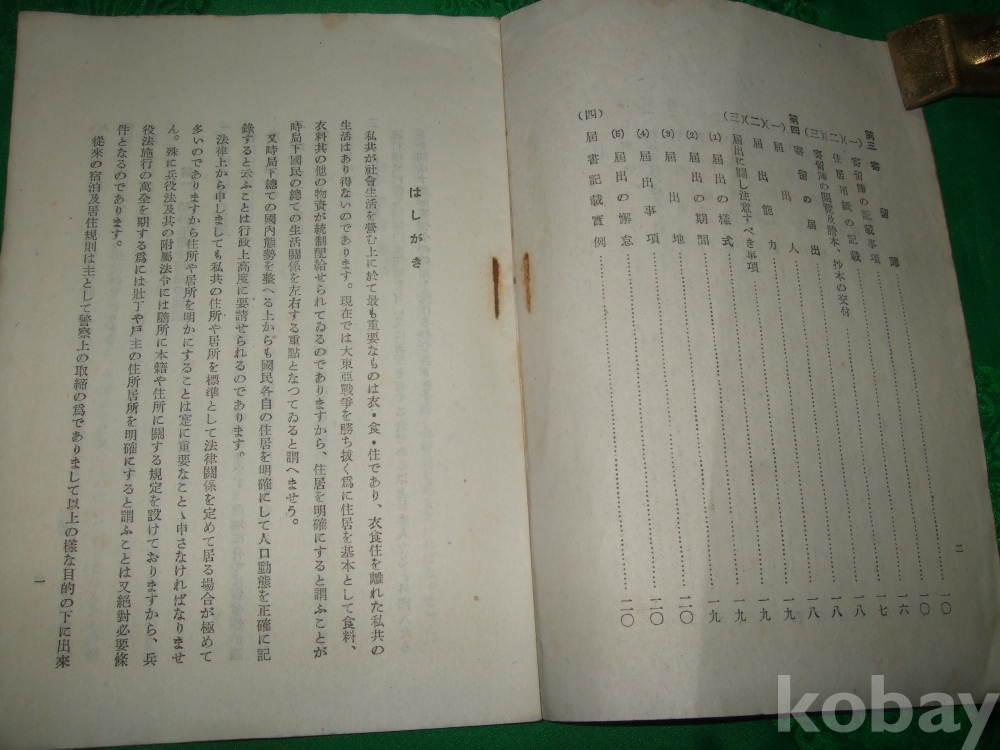 第三 寄留簿
(一) 寄留簿の記載事項
(二) 住居用紙の記載
(三) 寄留簿の閲覽及謄本、抄本の交付
第四 寄留の届出
(一) 届出人
(二) 届出能力
(三) 届出に關し注意すべき事項
(1) 届出の樣式
(2) 届出の期間
(3) 届出地
(4) 届出事項
(5) 届出の懈怠
(四) 屆書記載實例
一〇
一〇
一六
一七
一八
一八
一八
一九
一九
一九
一九
二〇
二〇
二〇
二
はしがき
私共が社會生活を營む上に於て最も重要なものは衣・食・住であり、衣食住を離れた私共の
生活はあり得ないのであります。現在では大東亞戰爭を勝ち拔く爲に住居を基本として食料、
衣料其の他の物資が統制配給せられてゐるのでありますから、住居を明確にすると謂ふことが
時局下國民の總ての生活關係を左右する重點となつてゐると謂へませう。
又時局下總ての國內態勢を整へる上からも國民各自の住居を明確にして人口動態を正確に記
錄すると云ふことは行政上高度に要請せられるのであります。
法律上から申しましても私共の住所や居所を標準として法律關係を定めて居る場合が極めて
多いのでありますから住所や居所を明かにすることは寔に重要なことゝ申さなければなりませ
ん。殊に兵役法及其の附屬法令には隨所に本籍や住所に關する規定を設けておりますから、兵
役法施行の萬全を期する爲には壯丁や戶主の住所居所を明確にすると謂ふことは又絕對必要條
件となるのであります。
從來の宿泊及居住規則は主として警察上の取締の爲でありまして以上の樣な目的の下に出來
一
kobay